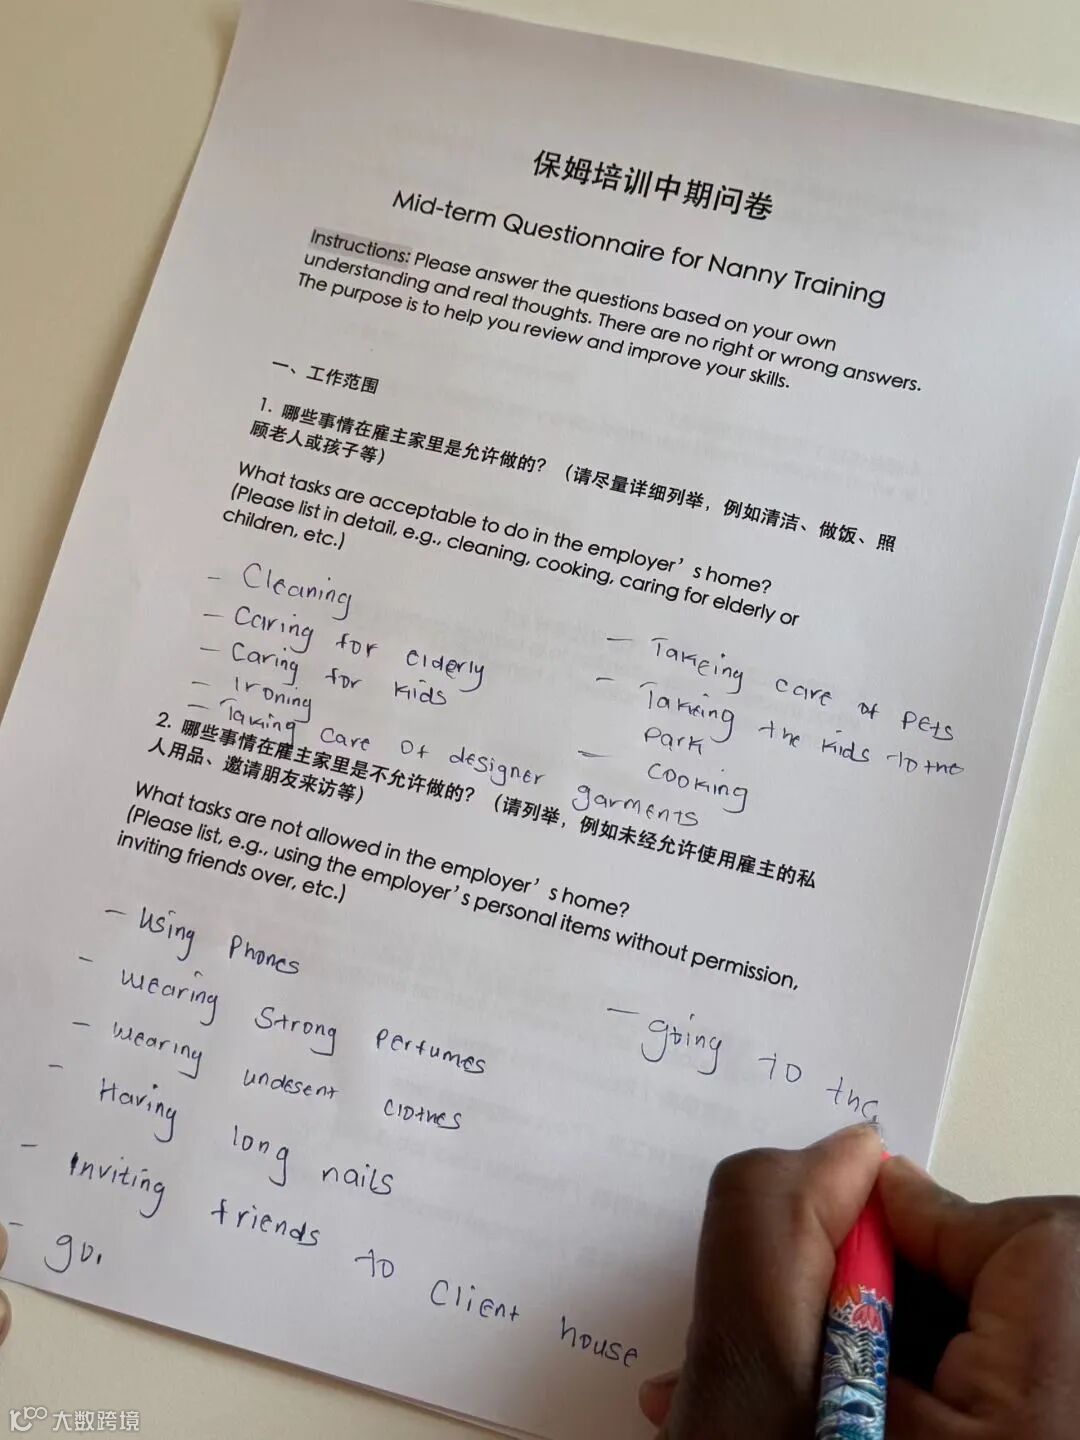 保姆培训中期问卷
Mid-term Questionnaire for Nanny Training
Instructions: Please answer the questions based on your own
understanding and real thoughts. There are no right or wrong answers.
The purpose is to help you review and improve your skills.
一、工作范围
1. 哪些事情在雇主家里是允许做的？（请尽量详细列举，例如清洁、做饭、照
顾老人或孩子等）
What tasks are acceptable to do in the employer’s home?
(Please list in detail, e.g., cleaning, cooking, caring for elderly or
children, etc.)
- Cleaning
- Caring for elderly
- Caring for kids
- Ironing
- Taking care of designer garments
- Takeing care of pets
- Takeing the kids to the
park
- cooking
2. 哪些事情在雇主家里是不允许做的？（请列举，例如未经允许使用雇主的私
人用品、邀请朋友来访等）
What tasks are not allowed in the employer’s home?
(Please list, e.g., using the employer’s personal items without permission,
inviting friends over, etc.)
- Using phones
- wearing strong perfumes
- wearing undesent clothes
- Having long nails
- inviting friends to client house
- goi
- going to the
大数跨境